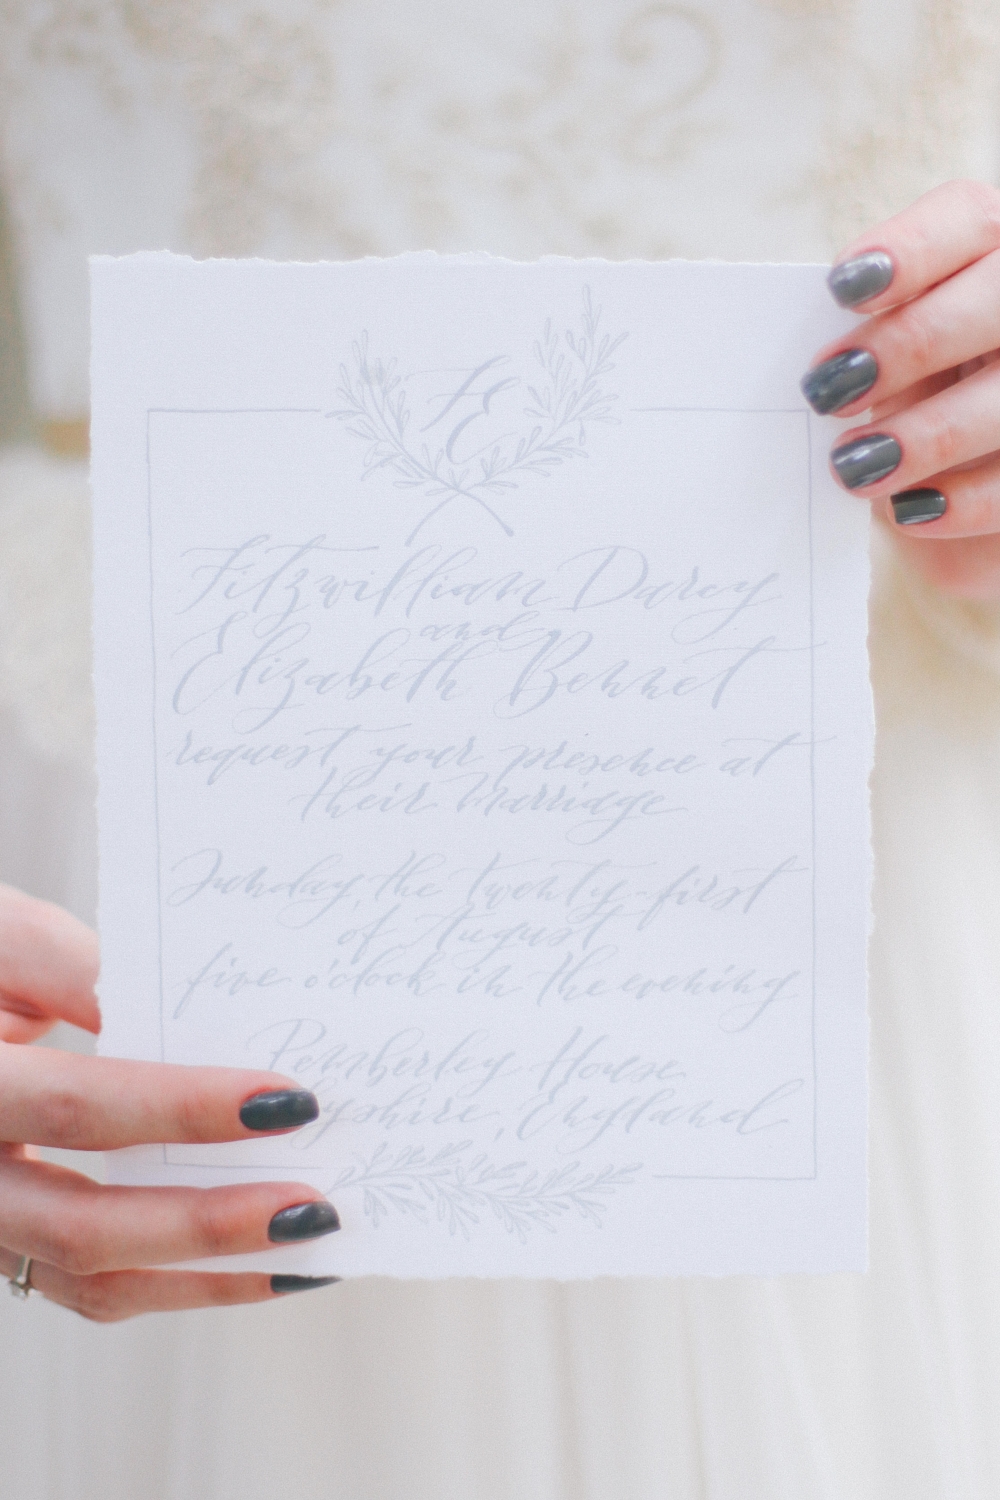 FE
Fitzwilliam Darcy
and
Elizabeth Bennet
request your presence at
their marriage
Sunday, the twenty-first
of August
five o'clock in the evening
Pemberley House
yshire, England